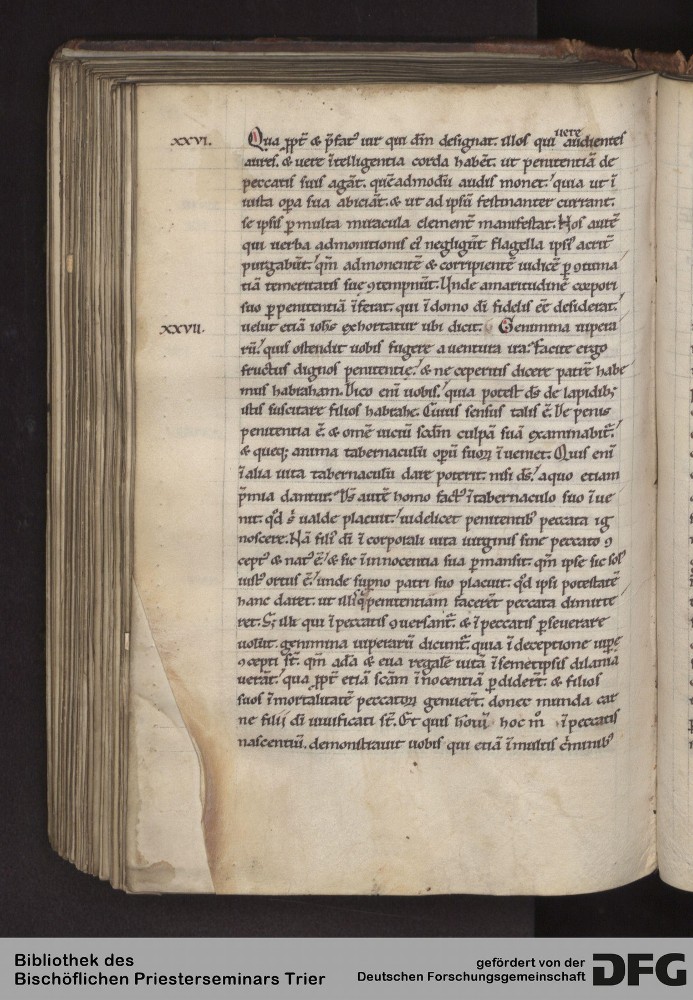 XXVI.
Qua ꝓpt̄ & p̄fat᷒ uir qui dm̄ designat. illos qui uere audientes
aures. & uere ītelligentia corda habēt. ut penitentiā de
peccatis suis agāt. quēadmodū audis monet: quia ut ī
iusta opa sua abiciāt. & ut ad ipsū festinanter currant.
se ipsis p multa miracula clementē manifestat. Nos autē
qui uerba admonitionis ei᷒ negligūt flagella ipsi᷒ acrit̄
purgabūt. qm̄ admonentē & corripientē iudicē p ꝯtuma
tiā temeritatis sue ꝯtempnūt. Unde amaritudinē corpori
suo p penitentiā īferat. qui ī domo dī fidelis eē desiderat.
XXVII.
uelut etiā ioh̄s exhortatur ubi dicit. Genimina uipera
rū. quis ostendit uobis fugere a uentura ira: Facite ergo
fructus dignos penitentie. & ne ceperitis dicere patrē habe
mus habraham. Dico enī uobis. quia potest dś de lapidib;
istis suscitare filios habrahe. Cuius sensus talis ē. De penis
penitentia ē. & omē uiciū scdm̄ culpā suā examinabit̄.
& queq; anima tabernaculū operū suoꝝ īueniet. Quis enī
ī alia uita tabernaculū dare poterit. nisi dś. a quo etiam
p̄mia dantur. Dś autē homo fact᷒ ī tabernaculo suo īue
nit. qd̄ s᷒ ualde placuit. uidelicet penitentib᷒ peccata ig
noscere. Nā fili᷒ dī ī corporali uita uirginis sine peccato ꝯ
cept᷒ & nat᷒ ē. & sic īinnocentia sua pmansit. qm̄ ipse sic sol᷒
iust᷒ ortus ē. unde supno patri suo placuit. qd̄ ipsi potestatē
hanc daret. ut illi᷒ q penitentiam facerēt peccata dimitte
ret. S; illi qui ī peccatis ꝯuersant̄. & ī peccatis pseuerare
uolūt. genimina uiperarū dicunt̄. quia ī deceptione uipe
ꝯcepti st̄. qm̄ adā & eua regalē uitā ī semetipsis dilania
uerāt. qua ꝓpt̄ etiā scām īnocentiā pdidert̄. & filios
suos ī mortalitatē peccatoꝝ genuert̄. donec munda car
ne filii dī uiuificati st̄. Et quis hoc mº ī peccatis
nascentiū. demonstrauit uobis qui etiā ī multis c̄minib᷒
Bibliothek des
Bischöflichen Priesterseminars Trier
gefördert von der
Deutschen Forschungsgemeinschaft
DFG